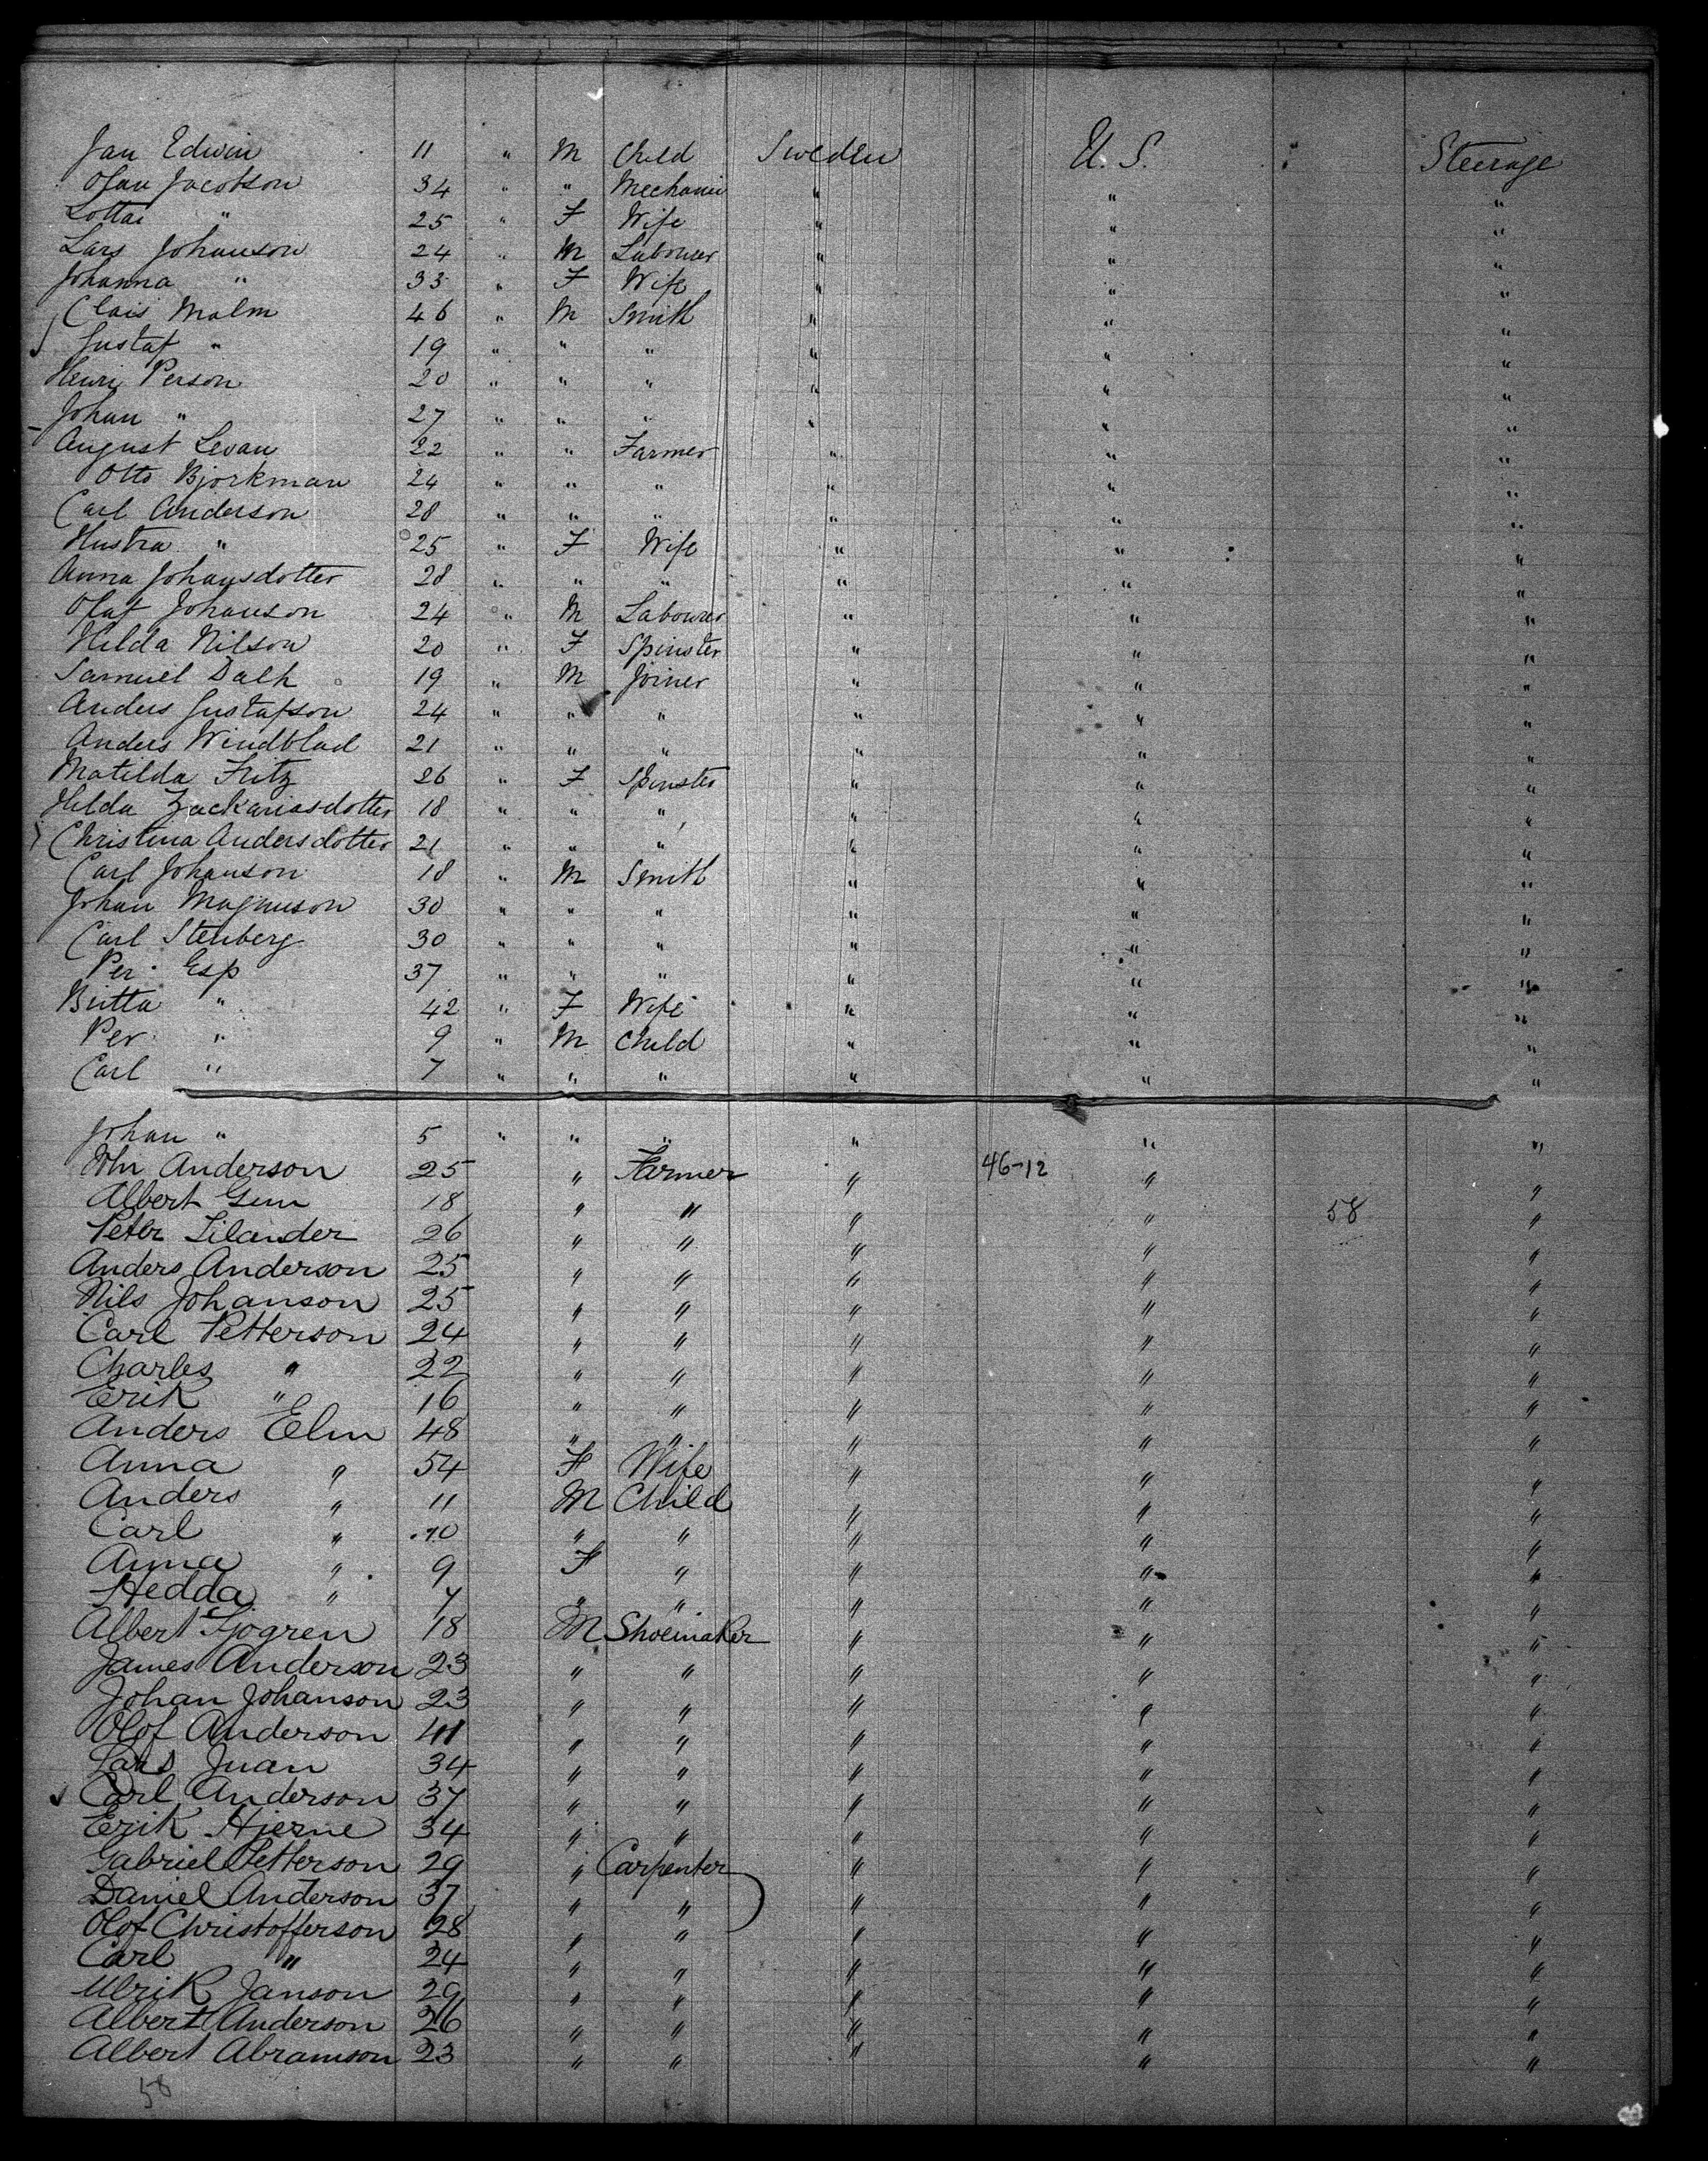 Jan Edwin 11 " M Child Sweden U. S. Steerage
Olau Jacobson 34 " " Mechanic " " "
Lottai " 25 " F Wife " " "
Lars Johanson 24 " M Labourer " " "
Johanna " 33 " F Wife " " "
Clais Malm 46 " M Smith " " "
Gustaf " 19 " " " " " "
Henri Person 20 " " " " " "
Johan " 27 " " " " " "
August Levau 22 " " Farmer " " "
Otto Bjorkman 24 " " " " " "
Carl Anderson 28 " " " " " "
Hustra " 25 " F Wife " " "
Anna Johansdotter 28 " " " " " "
Olaf Johanson 24 " M Labourer " " "
Hilda Nilson 20 " F Spinster " " "
Samuel Dalh 19 " M Joiner " " "
Anders Gustafson 24 " " " " " "
Anders Windblad 21 " " " " " "
Matilda Fritz 26 " F Spinster " " "
Hilda Zackariasdotter 18 " " " " " "
Christina Andersdotter 21 " " " " " "
Carl Johanson 18 " M Smith " " "
Johan Magnuson 30 " " " " " "
Carl Stenberg 30 " " " " " "
Per Esp 37 " " " " " "
Britta " 42 " F Wife " " "
Per " 9 " M Child " " "
Carl " 7 " " " " " "
Johan " 5 " " " " " "
Joh Anderson 25 " Farmer " 46-12 " "
Albert Gum 18 " " " " 58 "
Peter Lilander 26 " " " " "
Anders Anderson 25 " " " " "
Nils Johanson 25 " " " " "
Carl Petterson 24 " " " " "
Charles " 22 " " " " "
Erik " 16 " " " " "
Anders Elm 48 " " " " "
Anna " 54 F Wife " " "
Anders " 11 M Child " " "
Carl " 10 " " " " "
Anna " 9 F " " " "
Hedda " 7 " " " " "
Albert Sjogren 18 M Shoemaker " " "
James Anderson 23 " " " " "
Johan Johanson 23 " " " " "
Olof Anderson 41 " " " " "
Lars Juan 34 " " " " "
Carl Anderson 37 " " " " "
Erik Hjerne 34 " " " " "
Gabriel Petterson 29 " Carpenter " " "
Daniel Anderson 37 " " " " "
Olof Christofferson 28 " " " " "
Carl " 24 " " " " "
Ulrik Janson 29 " " " " "
Albert Anderson 26 " " " " "
Albert Abramson 23 " " " " "
58